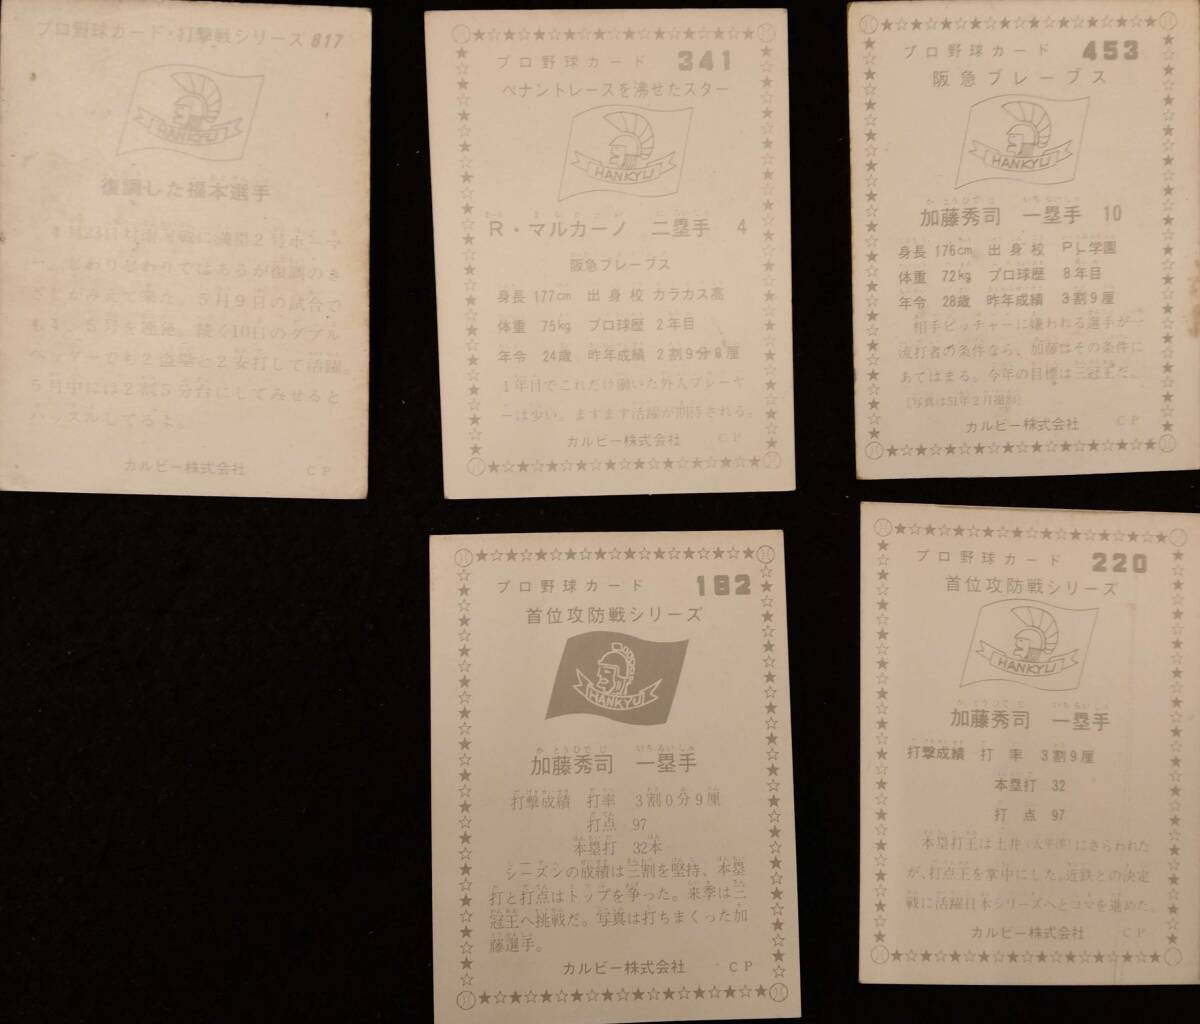 プロ野球カード・打撃戦シリーズ 817
HANKYU
復調した福本選手
4月23日対南海戦に満塁2号ホーマ
ー。じわりじわりではあるが復調のき
ざしがみえて来た。5月9日の試合で
も4、5号を連発。続く10日のダブル
ヘッダーでも2盗塁と2安打して活躍。
5月中には2割5分台にしてみせると
ハッスルしてるよ。
カルビー株式会社 CP
プロ野球カード 341
ペナントレースを沸せたスター
HANKYU
R・マルカーノ 二塁手 4
阪急ブレーブス
身長 177cm 出身校 カラカス高
体重 75kg プロ球歴 2年目
年令 24歳 昨年成績 2割9分8厘
1年目でこれだけ働いた外人プレーヤ
ーは少い。ますます活躍が期待される。
カルビー株式会社 CP
プロ野球カード 453
阪急ブレーブス
HANKYU
かとうひでじ いちるいしゅ
加藤秀司 一塁手 10
身長 176cm 出身校 PL学園
体重 72kg プロ球歴 8年目
年令 28歳 昨年成績 3割9厘
相手ピッチャーに嫌われる選手が一
流打者の条件なら、加藤はその条件に
あてはまる。今年の目標は三冠王だ。
[写真は51年2月撮影]
カルビー株式会社 CP
プロ野球カード 182
首位攻防戦シリーズ
HANKYU
かとうひでじ いちるいしゅ
加藤秀司 一塁手
打撃成績 打率 3割0分9厘
打点 97
本塁打 32本
シーズンの成績は三割を堅持、本塁
打と打点はトップを争った。来季は三
冠王へ挑戦だ。写真は打ちまくった加
藤選手。
カルビー株式会社 CP
プロ野球カード 220
首位攻防戦シリーズ
HANKYU
かとうひでじ いちるいしゅ
加藤秀司 一塁手
打撃成績 打率 3割9厘
本塁打 32
打点 97
本塁打王は土井(太平洋)にさらわれた
が、打点王を掌中にした。近鉄との決定
戦に活躍日本シリーズへとコマを進めた。
カルビー株式会社 CP